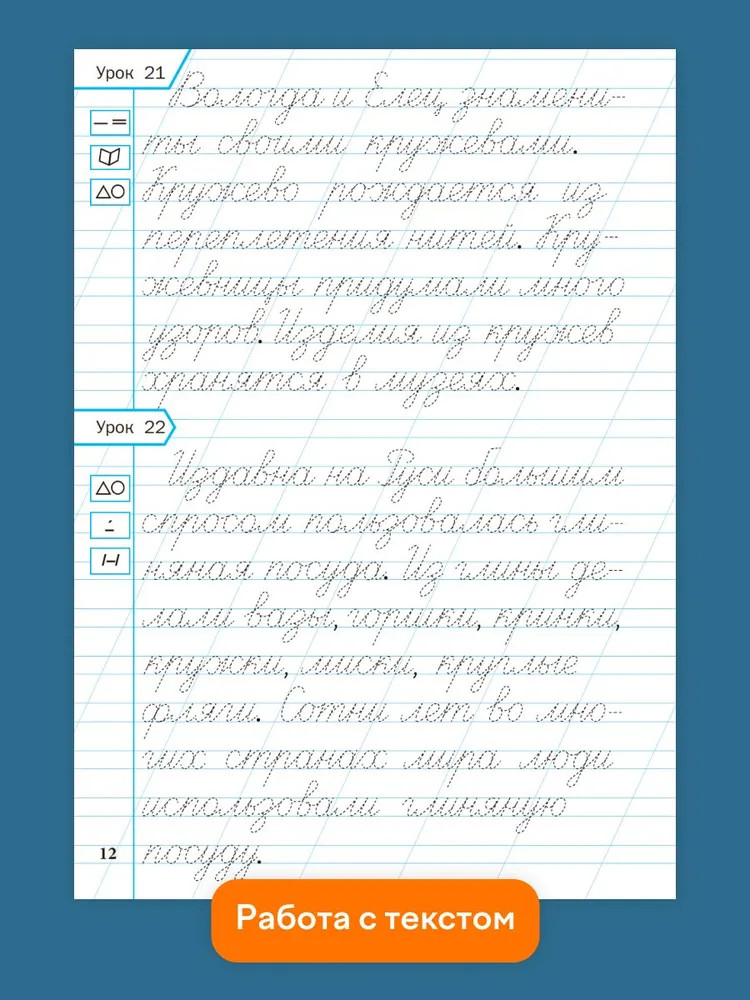 Урок 21
Вологда и Елец знамени-
ты своими кружевами.
Кружево рождается из
переплетения нитей. Кру-
жевницы придумали много
узоров. Изделия из кружев
хранятся в музеях.
Урок 22
Издавна на Руси большим
спросом пользовалась гли-
няная посуда. Из глины де-
лали вазы, горшки, кринки,
кружки, миски, круглые
фляги. Сотни лет во мно-
гих странах мира люди
использовали глиняную
посуду.
12
Работа с текстом